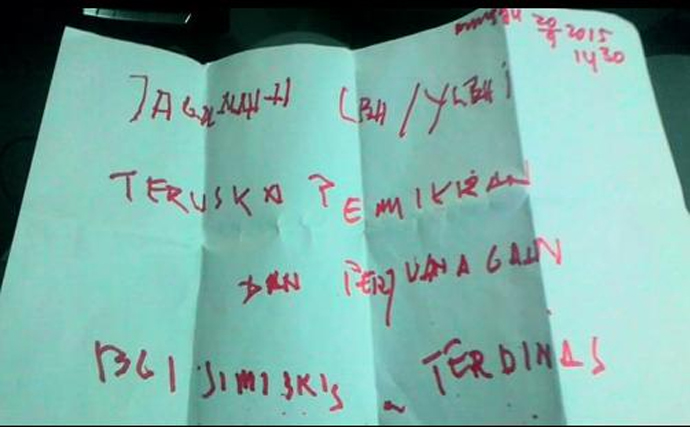 minggu 20/9 2015
1430
JAGALAH-H LBH/YLBHI
TERUSKA PEMIKIRAN
DAN PERJUANAGAN
BGI SIMISKIS TERDINAS